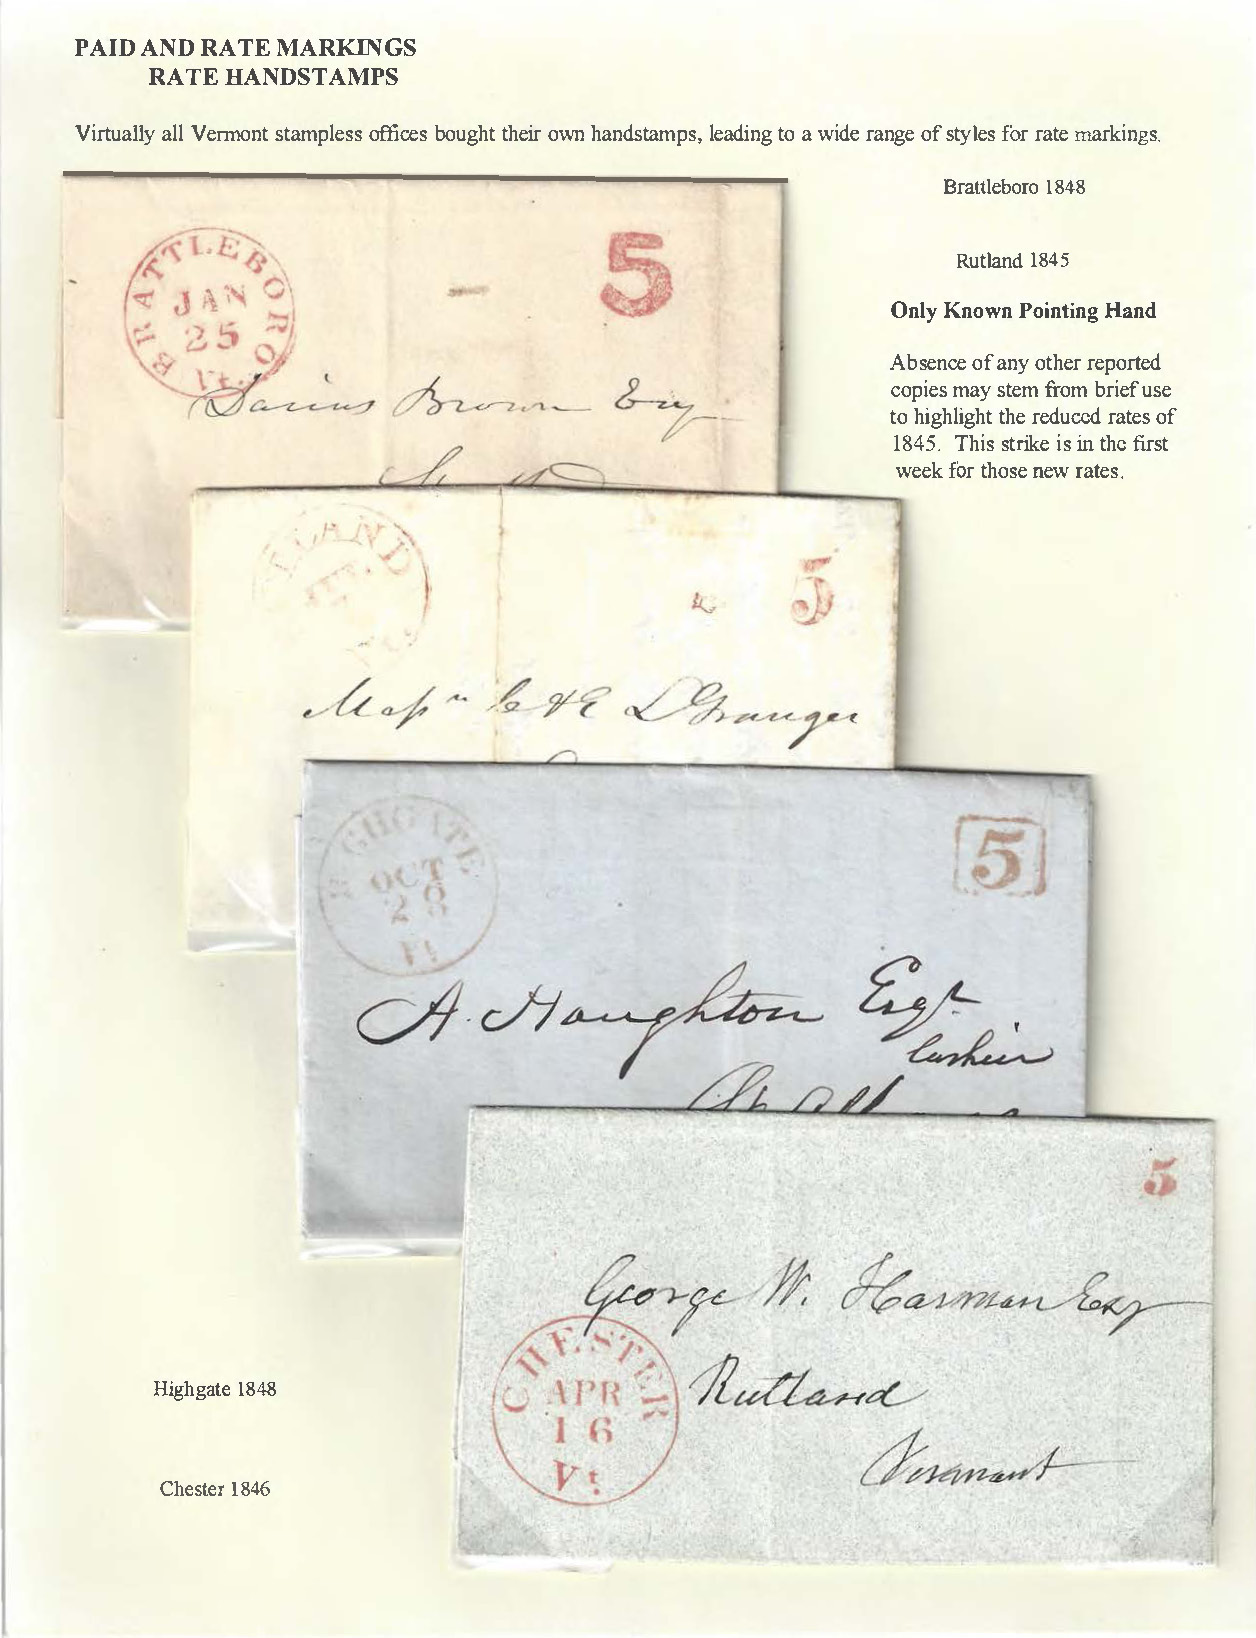 PAID AND RATE MARKINGS
RATE HANDSTAMPS
Virtually all Vermont stampless offices bought their own handstamps, leading to a wide range of styles for rate markings.
Brattleboro 1848
Rutland 1845
Only Known Pointing Hand
Absence of any other reported
copies may stem from brief use
to highlight the reduced rates of
1845. This strike is in the first
week for those new rates.
BRATTLEBORO
JAN
25
Vt.
5
Darius Brown Esq
LAND
5
Mess rs C & E L Granger
HIGHGATE
OCT
28
Vt
5
A. Houghton Esqr
Cashier
St Albans
5
George W. Harman Esq
CHESTER
APR
16
Vt
Rutland
Vermont
Highgate 1848
Chester 1846